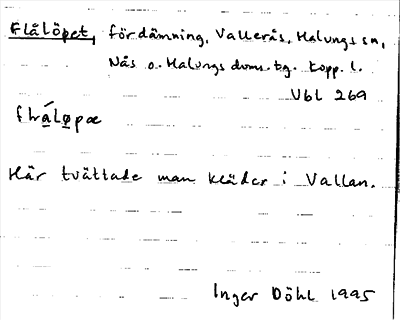 Flålöpet, fördämning, Vallerås, Malungs sn,
Nås o. Malungs doms. tg. Kopp. l.
Vbl 269
Här tvättade man kläder i Vallan.
Inger Döhl 1995